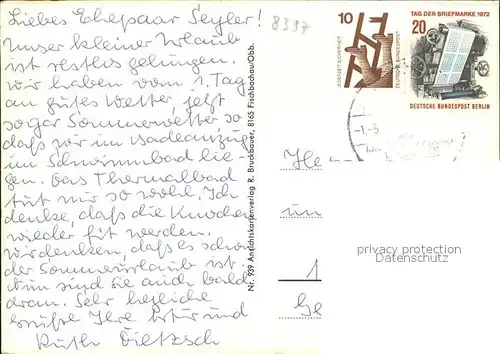 Liebes Ehepaar Seyler!
Unser kleiner Urlaub
ist restlos gelungen.
Wir haben vom 1. Tag
an gutes Wetter, jetzt
sogar Sommerwetter so
daß wir im Badeanzug
im Schwimmbad lie-
gen. Das Thermalbad
tut mir so wohl. Ich
denke, daß die Knochen
wieder fit werden.
Wir denken, daß es schon
der Sommerurlaub ist.
Nun sind Sie auch bald
dran. Sehr herzliche
Grüße Ihre
Ruth Dietzsch
8397
Nr. 939 Ansichtskartenverlag R. Bruckbauer, 8165 Fischbachau/Obb.
10
JEDERZEIT SICHERHEIT
DEUTSCHE BUNDESPOST
TAG DER BRIEFMARKE 1972
20
DEUTSCHE BUNDESPOST BERLIN
-1.-5.
He
un
1
Ge
privacy protection
Datenschutz